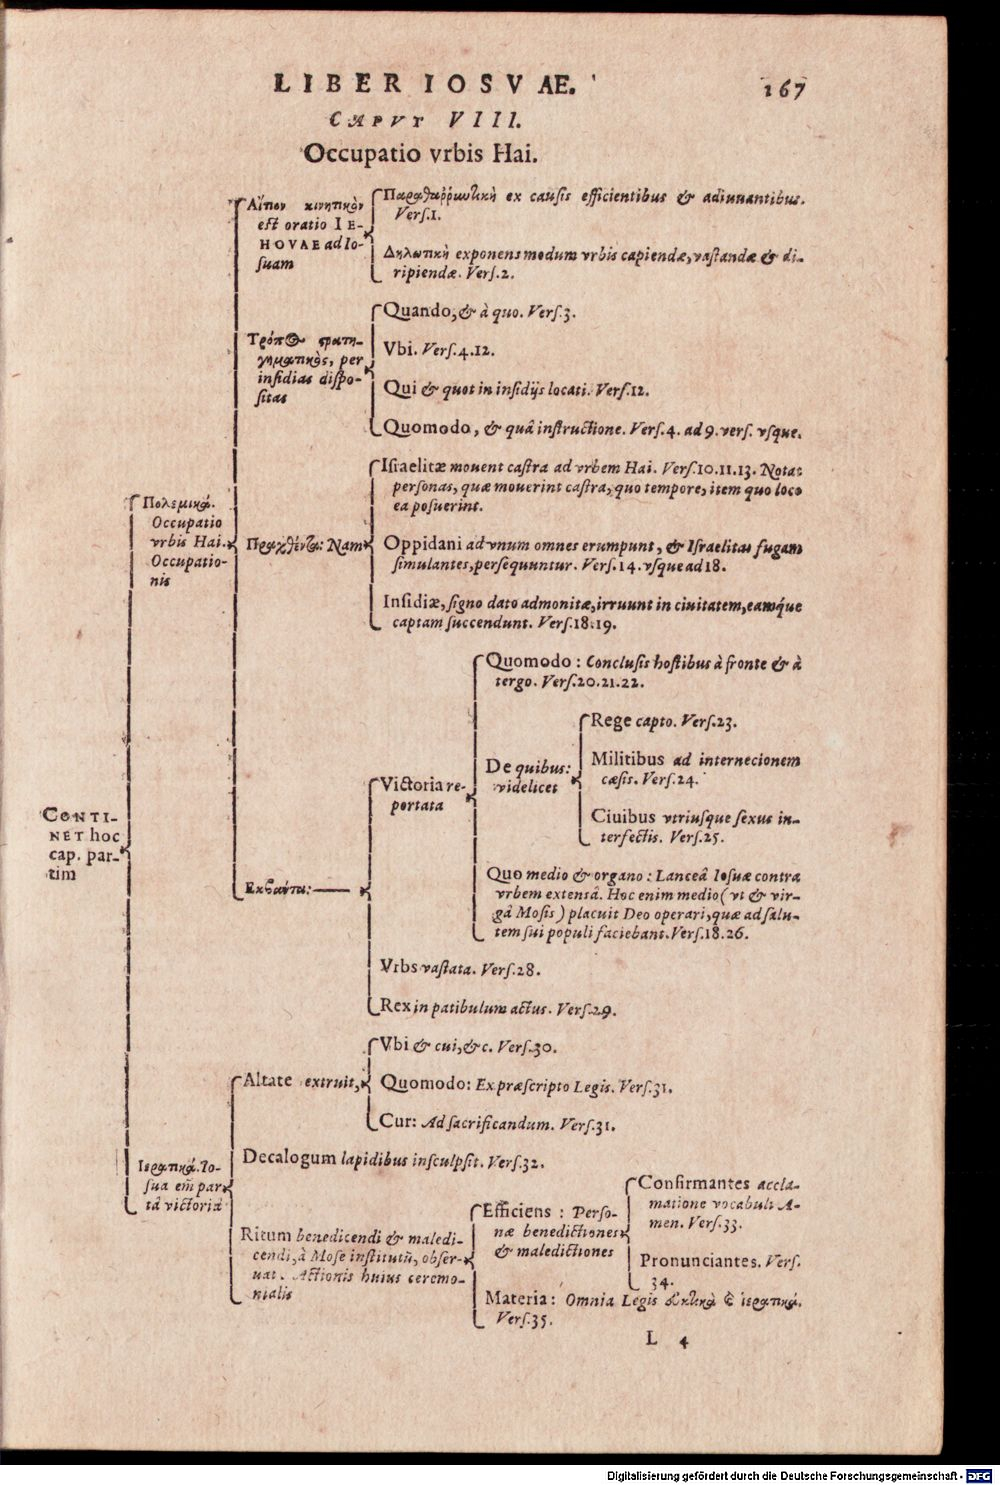 LIBER IOSVAE. 167
CAPVT VIII.
Occupatio vrbis Hai.
CONTI-
NET hoc
cap. par-
tim
Πολεμικά.
Occupatio
vrbis Hai.
Occupatio-
nis
Αἴτιον κινητικὸν
est oratio IE-
HOVAE ad Io-
suam
Παραθαρρυντικὴ ex causis efficientibus & adiuuantibus.
Vers.1.
Δηλωτικὴ exponens modum vrbis capiendæ, vastandæ & di-
ripiendæ. Vers.2.
Τρόπος στρατη-
γηματικὸς, per
insidias dispo-
sitas
Quando, & à quo. Vers.3.
Vbi. Vers.4.12.
Qui & quot in insidijs locati. Vers.12.
Quomodo, & quâ instructione. Vers.4. ad 9. vers. vsque.
Πραχθέντα: Nam
Israelitæ mouent castra ad vrbem Hai. Vers.10.11.13. Nota:
personas, quæ mouerint castra, quo tempore, item quo loco
ea posuerint.
Oppidani ad vnum omnes erumpunt, & Israelitas fugam
simulantes, persequuntur. Vers.14. vsque ad 18.
Insidiæ, signo dato admonitæ, irruunt in ciuitatem, eamq́ue
captam succendunt. Vers.18.19.
Ἐκβάντα:
Victoria re-
portata
Quomodo: Conclusis hostibus à fronte & à
tergo. Vers.20.21.22.
De quibus:
videlicet
Rege capto. Vers.23.
Militibus ad internecionem
cæsis. Vers.24.
Ciuibus vtriusque sexus in-
terfectis. Vers.25.
Quo medio & organo: Lanceâ Iosuæ contra
vrbem extensâ. Hoc enim medio (vt & vir-
gâ Mosis) placuit Deo operari, quæ ad salu-
tem sui populi faciebant. Vers.18.26.
Vrbs vastata. Vers.28.
Rex in patibulum actus. Vers.29.
Ἱερατικά. Io-
sua em̄ par-
tâ victoriâ
Altare extruit,
Vbi & cui, &c. Vers.30.
Quomodo: Ex præscripto Legis. Vers.31.
Cur: Ad sacrificandum. Vers.31.
Decalogum lapidibus insculpsit. Vers.32.
Ritum benedicendi & maledi-
cendi, à Mose institutū, obser-
uat. Actionis huius ceremo-
nialis
Efficiens: Perso-
næ benedictiones
& maledictiones
Confirmantes accla-
matione vocabuli A-
men. Vers.33.
Pronunciantes. Vers.
34.
Materia: Omnia Legis & ἱερατικά.
Vers.35.
L 4
Digitalisierung gefördert durch die Deutsche Forschungsgemeinschaft - DFG